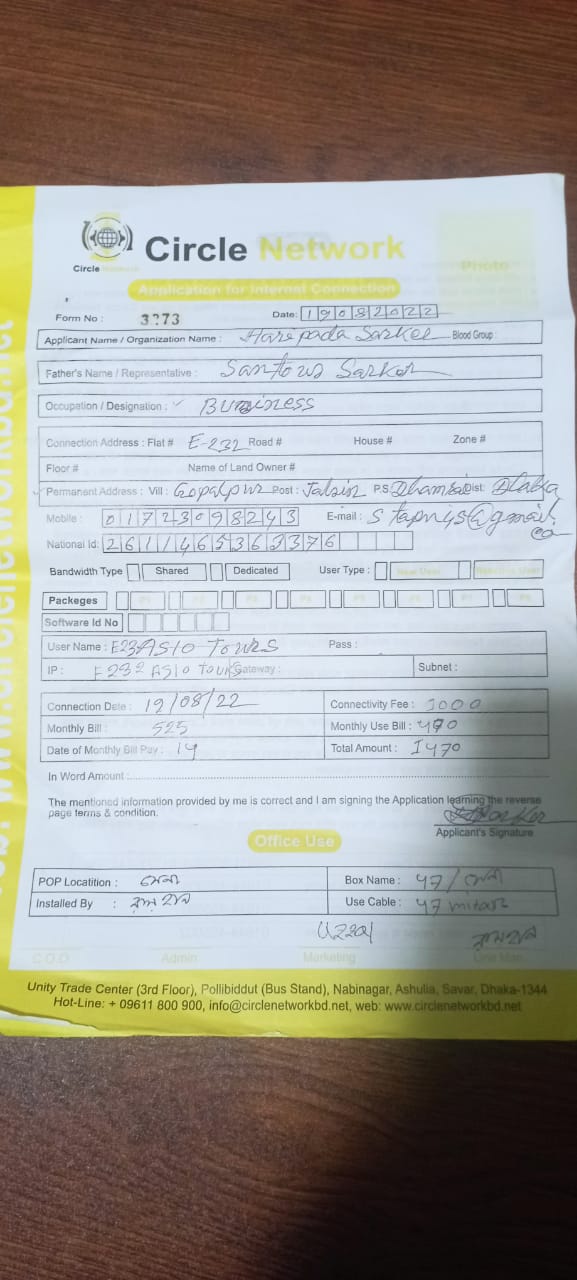 Circle Network
Circle Network
Photo
Application for Internet Connection
Form No : 3273 Date: 19082022
Applicant Name / Organization Name : Haripada Sarker Blood Group :
Father's Name / Representative : Santows Sarker
Occupation / Designation : Business
Connection Address : Flat # E-232 Road # House # Zone #
Floor # Name of Land Owner #
Permanent Address : Vill : Gopalpur Post : Jalsin P.S Dhamrai Dist: Dhaka
Mobile : 01723098243 E-mail :
National Id: 2611465363376
Bandwidth Type Shared Dedicated User Type : New User
Packeges P1 P2 P3 P4 P5 P6 P7 P8
Software Id No
User Name : E232 ASIO TOURS Pass :
IP : E232 ASIO TOURS Gateway : Subnet :
Connection Date : 19/08/22 Connectivity Fee : 1000
Monthly Bill : 525 Monthly Use Bill : 470
Date of Monthly Bill Pay : 14 Total Amount : 1470
In Word Amount :
The mentioned information provided by me is correct and I am signing the Application learning the reverse
page terms & condition.
Applicant's Signature
Office Use
POP Locatition : Box Name : 47/
Installed By : Use Cable : 47
C.O.O Admin Marketing Line Man
Unity Trade Center (3rd Floor), Pollibiddut (Bus Stand), Nabinagar, Ashulia, Savar, Dhaka-1344
Hot-Line: + 09611 800 900, info@circlenetworkbd.net, web: www.circlenetworkbd.net